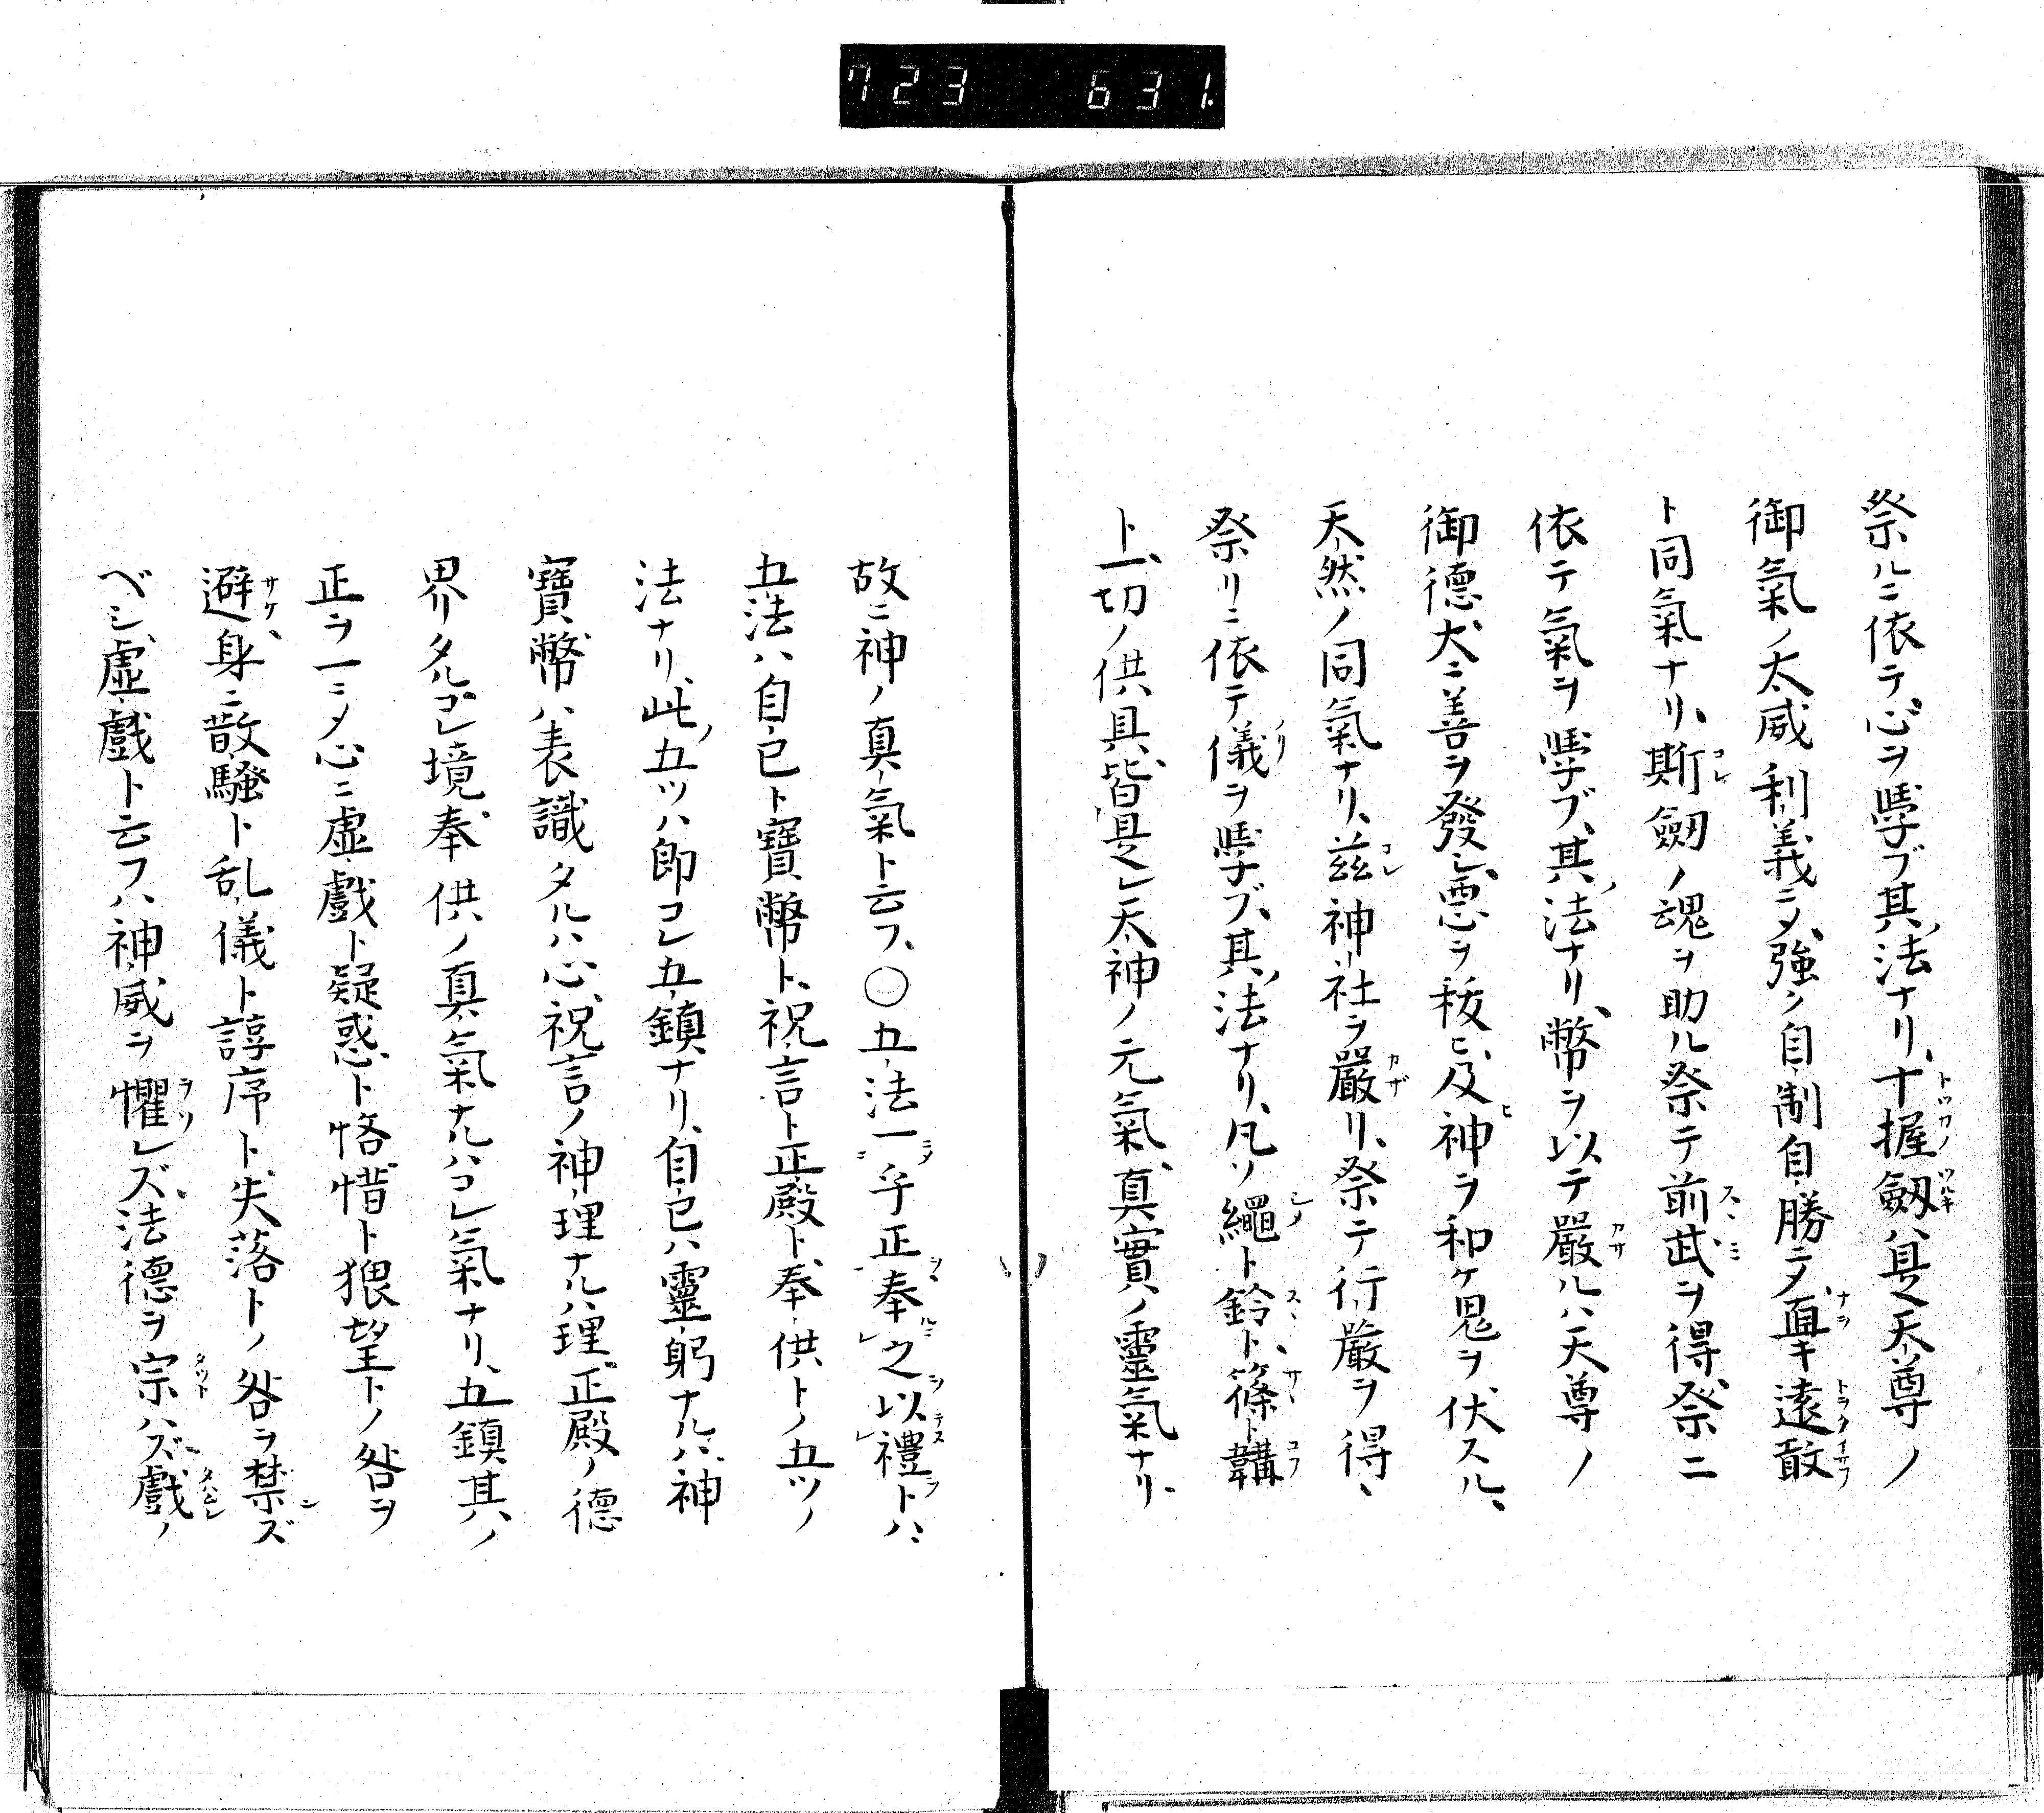 723 631.
祭ルニ依テ心ヲ學ブ其ノ法ナリ、十握劔ハ是天尊ノ
御氣ノ太威利義ニメ強ク自制自勝ニメ直キ遠敢
ト同氣ナリ、斯劔ノ魂ヲ助ル祭テ前武ヲ得、祭ニ
依テ氣ヲ學ブ、其ノ法ナリ、幣ヲ以テ嚴ルハ天尊ノ
御德大ニ善ヲ發シ、惡ヲ祓ヒ、及神ヲ和ケ鬼ヲ伏スル、
天然ノ同氣ナリ、茲神社ヲ嚴リ、祭テ行嚴ヲ得、
祭リニ依テ儀ヲ學ブ、其ノ法ナリ、凡ソ繩ト鈴ト篠ト韝
ト、一切ノ供具、皆是レ天神ノ元氣、真實ノ靈氣ナリ、
故ニ神ノ真氣ト云フ、○五法一乎正奉之以禮トハ、
五法ハ自己ト寶幣ト、祝言ト正殿ト、奉供トノ五ツノ
法ナリ、此ノ五ツハ即コレ五鎮ナリ、自己ハ靈躬ナルハ、神
寶幣ハ表識タルハ心、祝言ノ神理ナルハ理、正殿ノ德
界リタルコレ境、奉供ノ真氣ナルハコレ氣ナリ、五鎮其ノ
正ヲ一ニメ心ニ虛戲ト疑惑ト悋惜ト猥望トノ咎ヲ
避、身ニ散騷ト乱儀ト諄序ト失落トノ咎ヲ禁ズ
ベシ、虛戲ト云フハ、神威ヲ懼レズ、法德ヲ宗ハズ、戲ノ